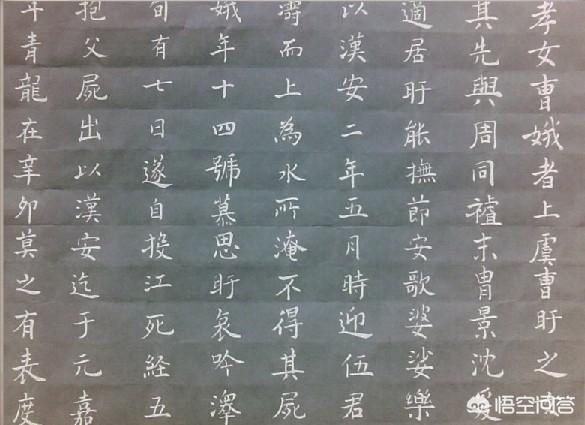 孝女曹娥者上虞曹盱之
其先與周同祖末胄景沈爰
適居盱能撫節安歌婆娑樂
以漢安二年五月時迎伍君
濤而上為水所淹不得其屍
娥年十四號慕思盱哀吟澤
旬有七日遂自投江死経五
抱父屍出以漢安迄于元嘉
年青龍在辛卯莫之有表度
悟空问答